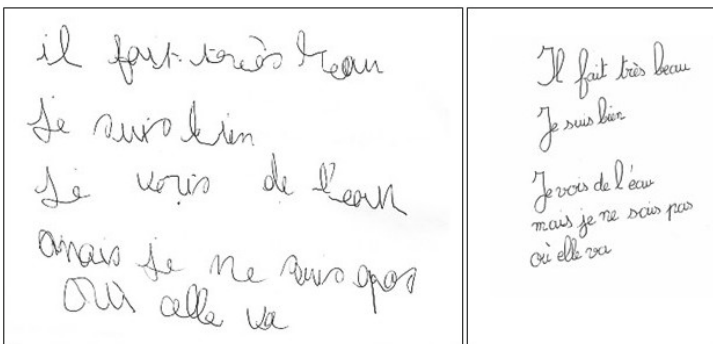 il fait très beau
Je suis bien
Je vois de l'eau
mais je ne sais pas
où elle va
Il fait très beau
Je suis bien
Je vois de l'eau
mais je ne sais pas
où elle va